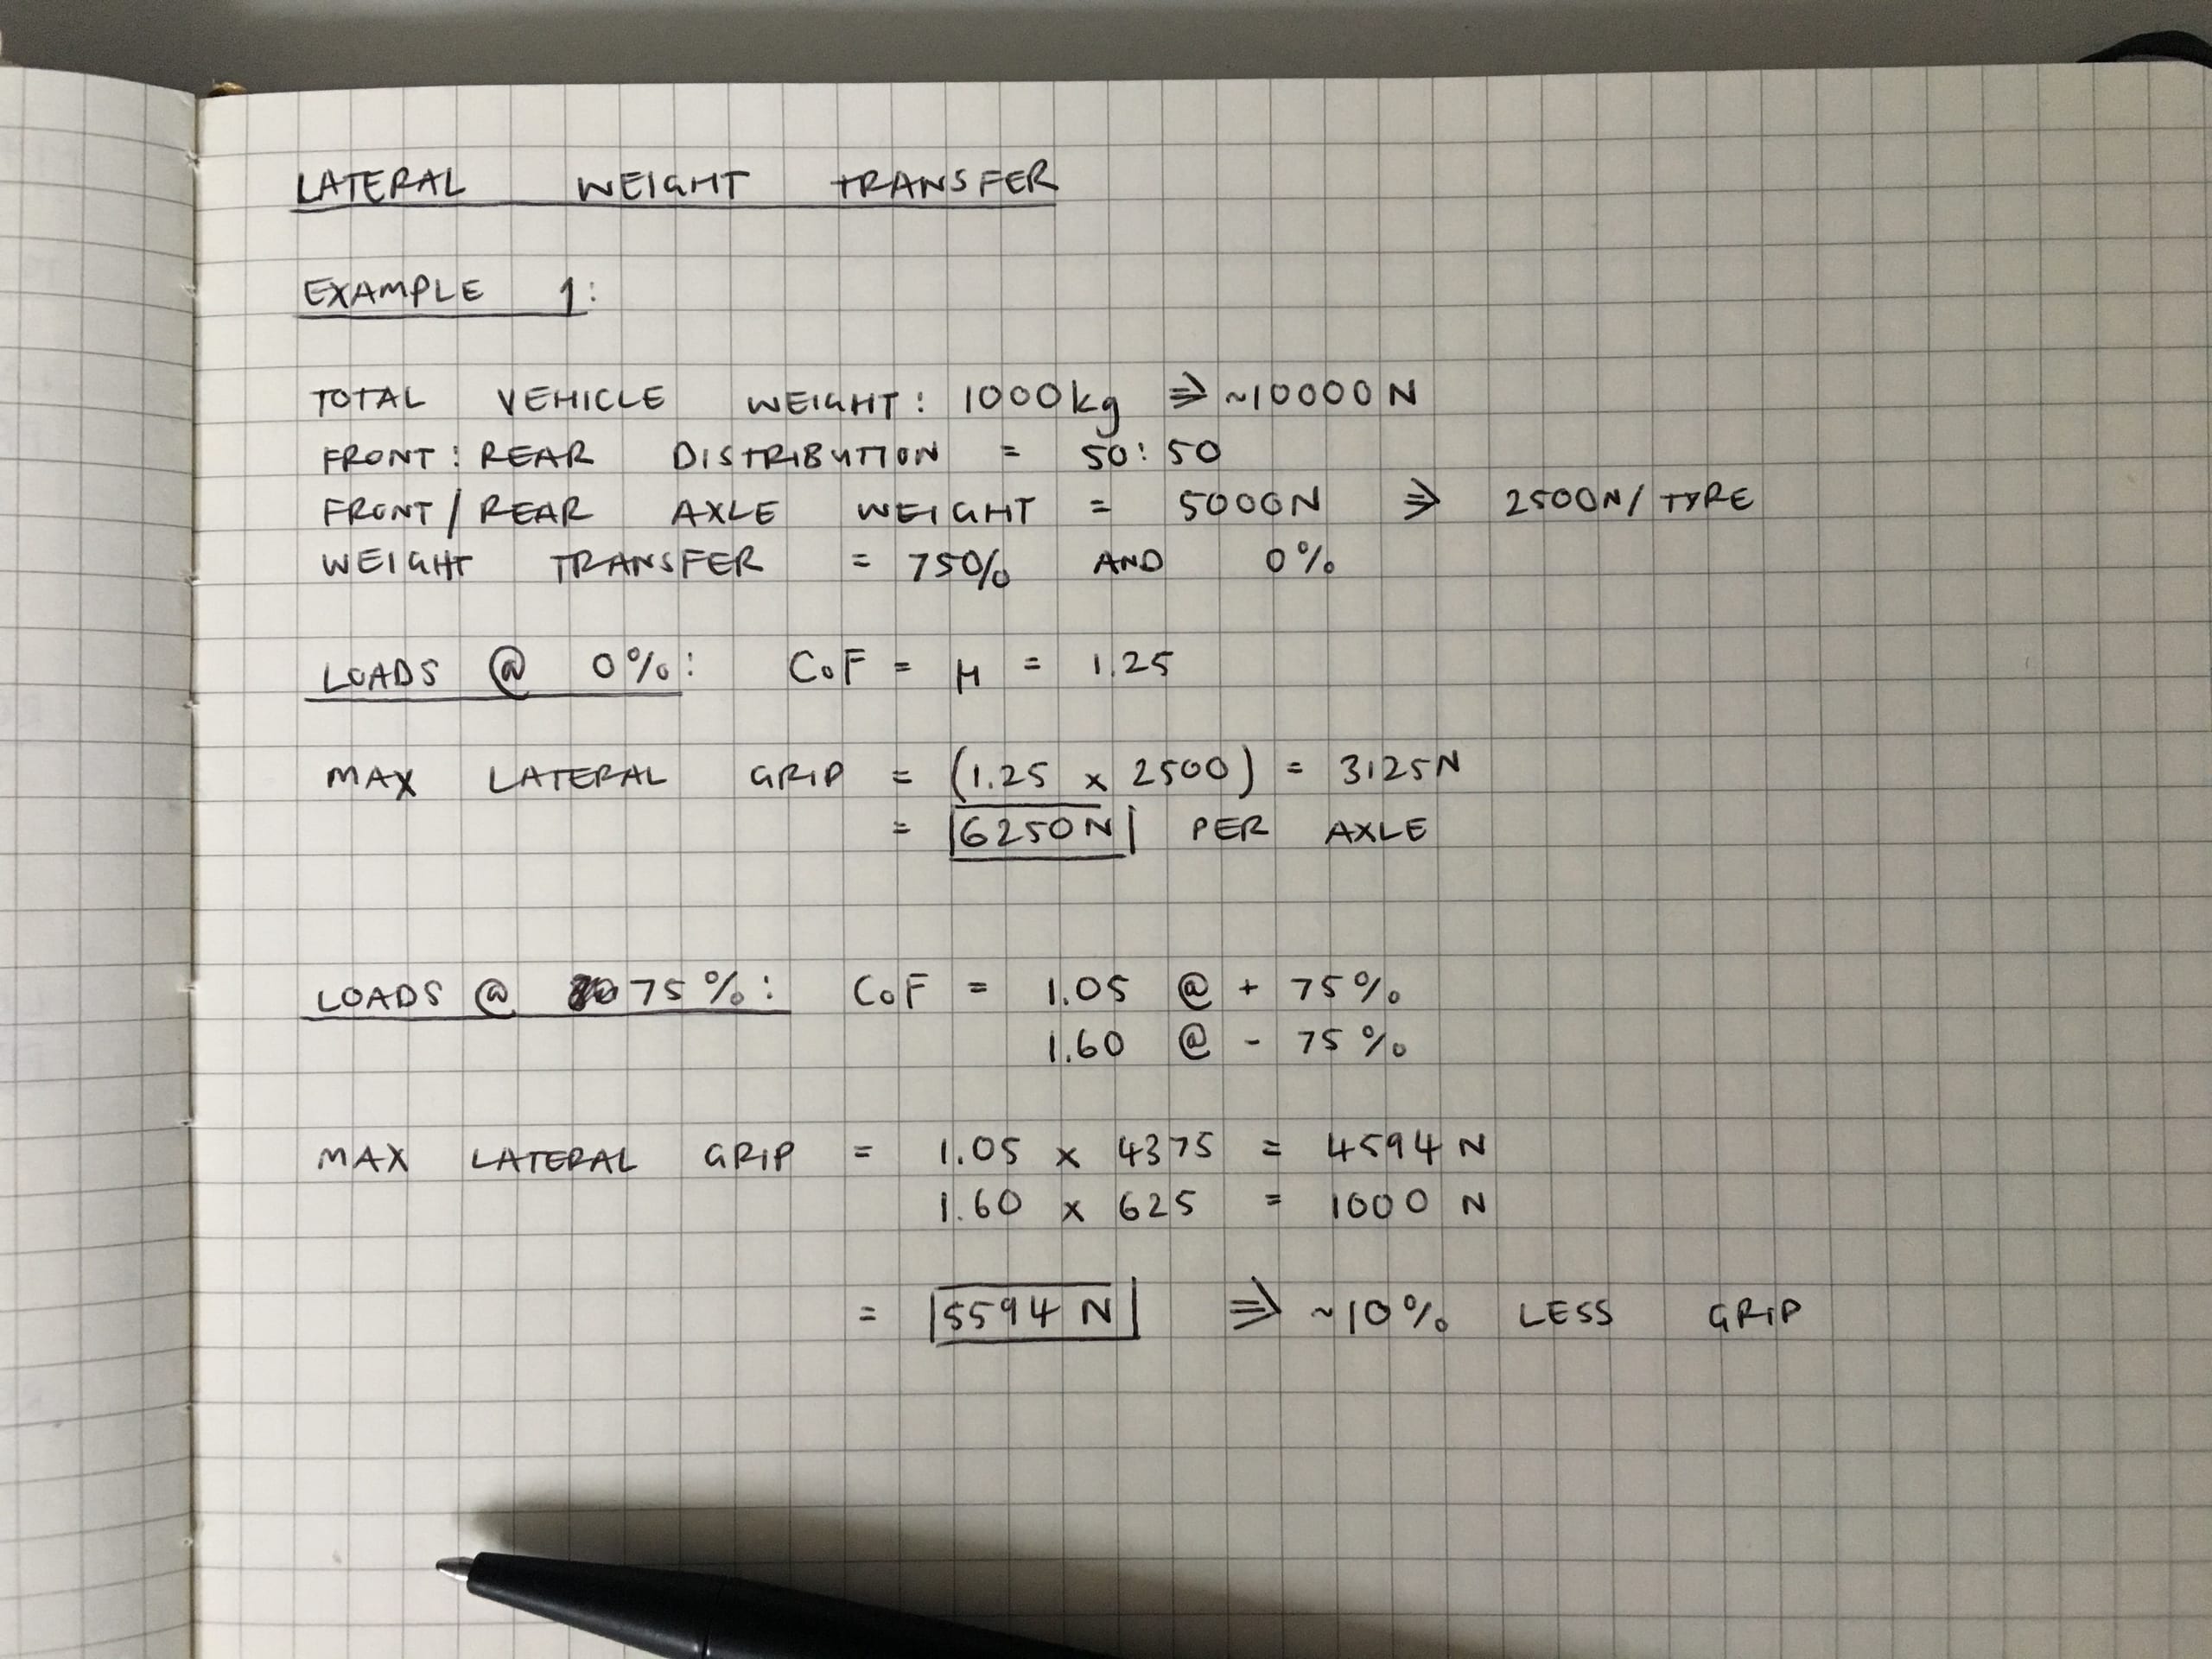 LATERAL WEIGHT TRANSFER
EXAMPLE 1:
TOTAL VEHICLE WEIGHT: 1000kg ⇒ ~10000N
FRONT: REAR DISTRIBUTION = 50:50
FRONT/REAR AXLE WEIGHT = 5000N ⇒ 2500N/TYRE
WEIGHT TRANSFER = 75% AND 0%
LOADS @ 0%: CoF = μ = 1.25
MAX LATERAL GRIP = (1.25 x 2500) = 3125N
= 6250N PER AXLE
LOADS @ 75%: CoF = 1.05 @ + 75%
1.60 @ - 75%
MAX LATERAL GRIP = 1.05 x 4375 = 4594 N
1.60 x 625 = 1000 N
= 5594 N ⇒ ~10% LESS GRIP